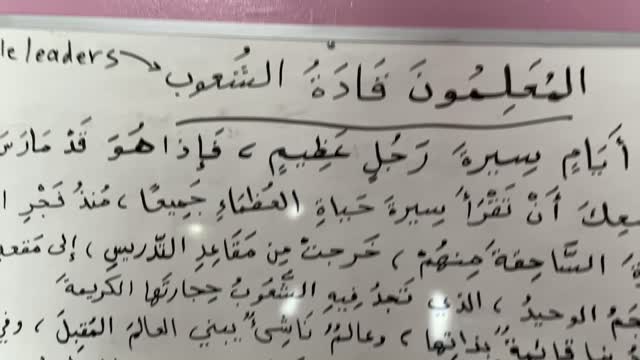 le leaders
المُعَلِمُونَ قَادَةُ الشُعوب
أَيَامٍ سِيرةَ رَجُلٍ عَظِيمٍ ، فَإِذا هُوَ قَدْ مَارَسَ
أَنْ تَقْرَأَ سِيرةَ حَياةِ العُظَمَاءِ جَمِيعًا ، مُنذُ فَجْرِ
السَّاحِقَةَ مِنهُمْ ، خَرجتْ مِن مَقَاعِدِ التّدريسِ ، إلى مَقعدِ
الوحيدُ ، الذي تَجدُ فيهِ الشَّعوبُ حِجارتَها الكَريمةَ
بذاتها ، وعالمٌ نَاشِئٌ يبني العالمَ المُقبِلَ ، وفي